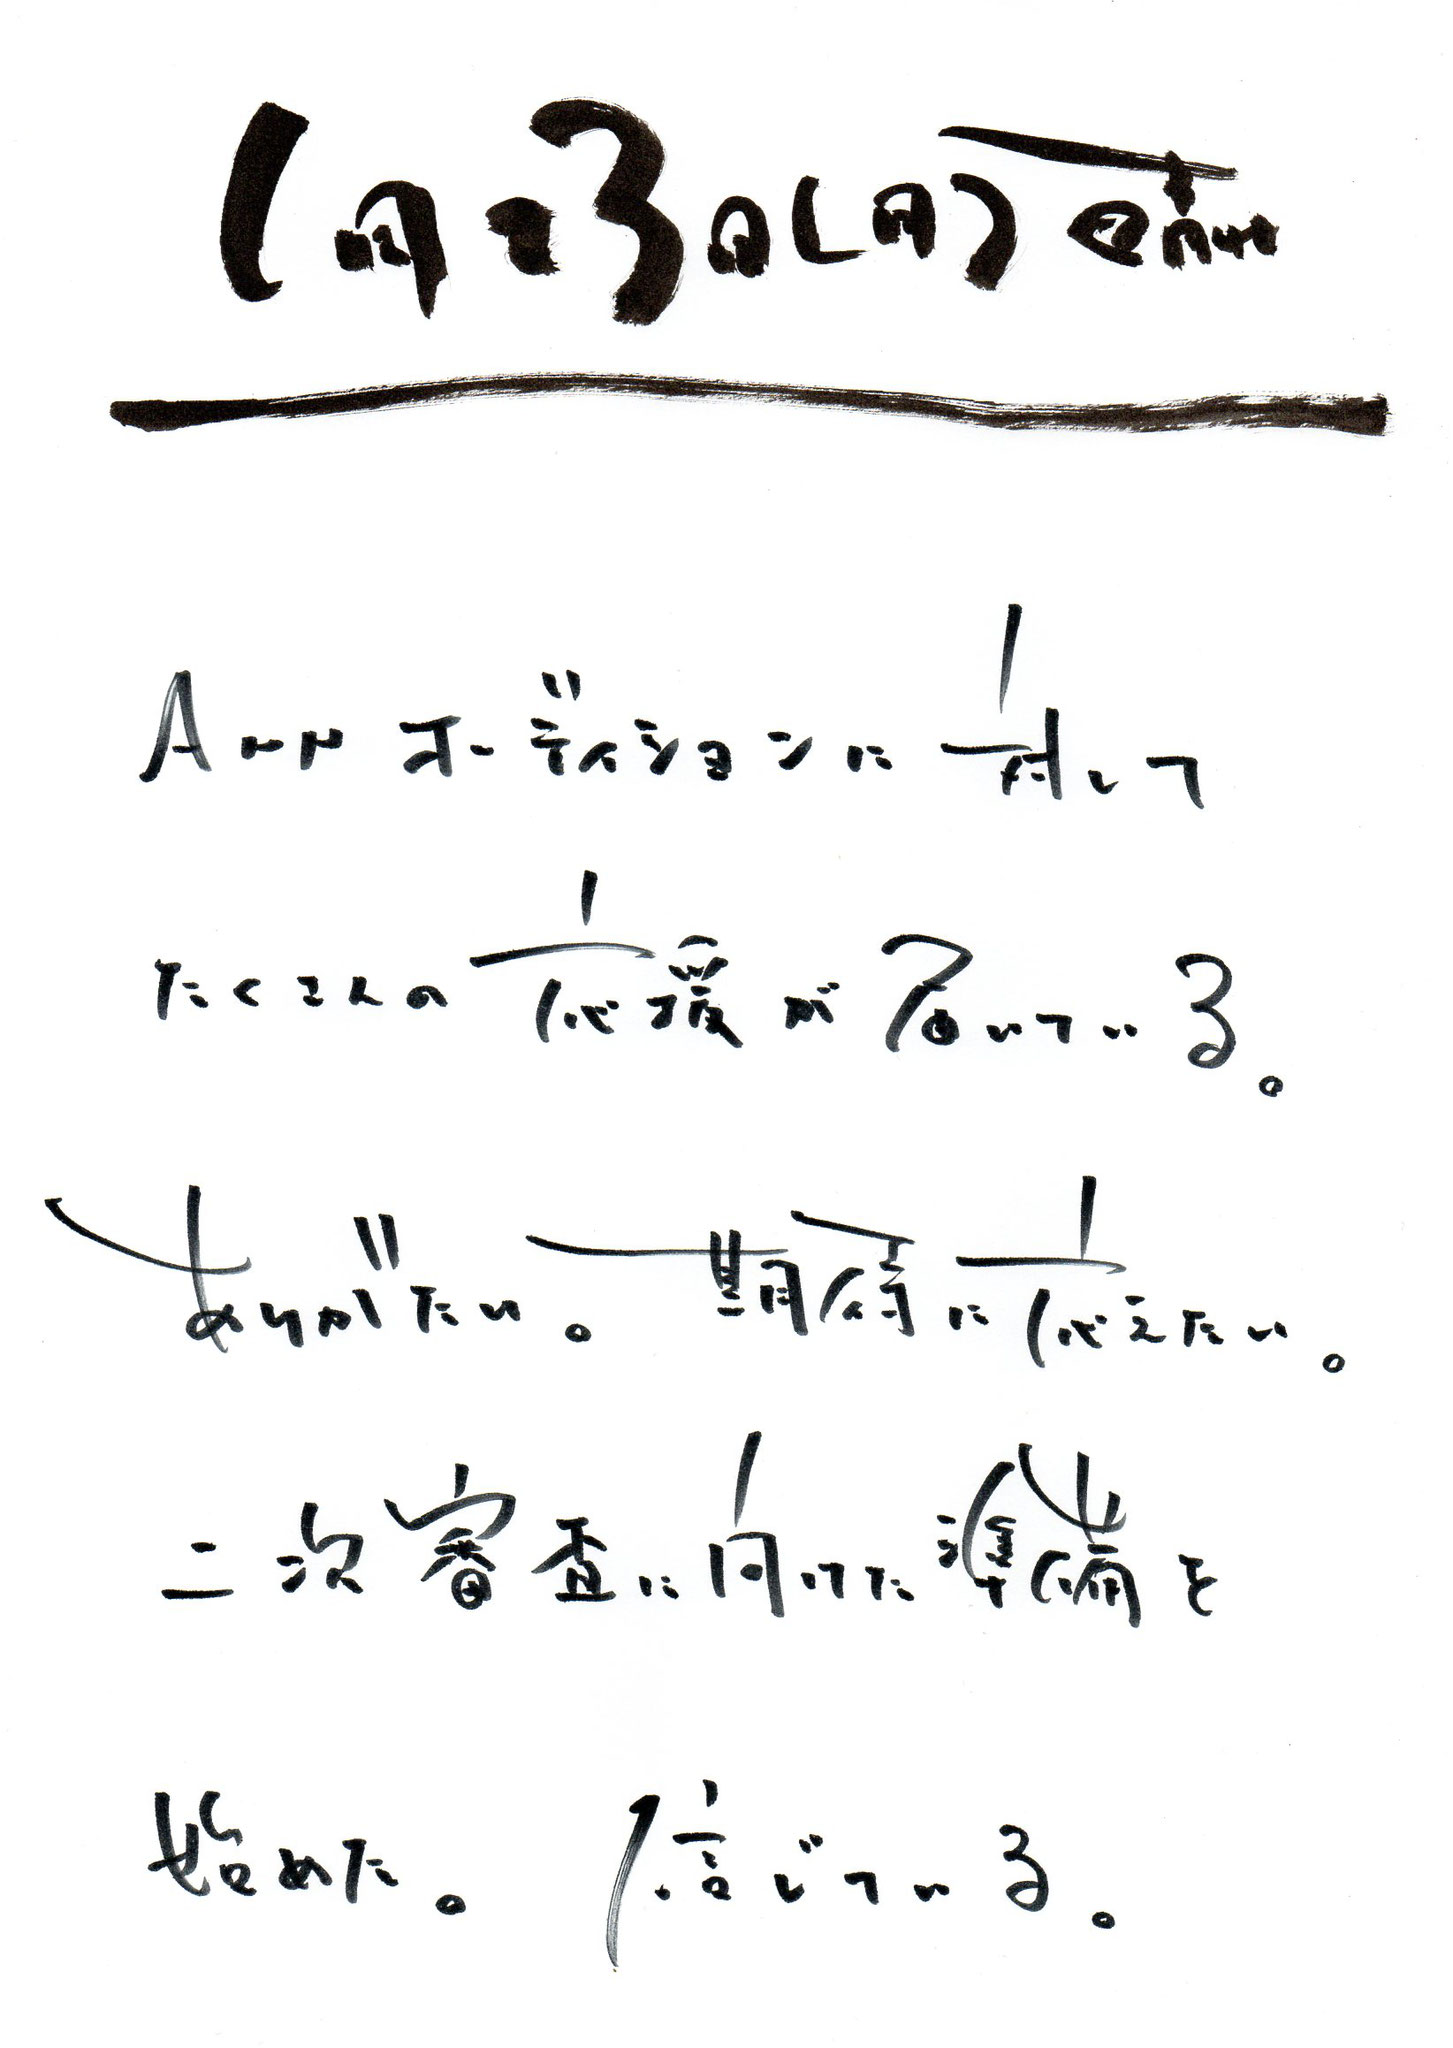 1月23日(月)
ANNオーディションに対して
たくさんの応援が届いている。
ありがたい。期待に応えたい。
二次審査に向けた準備を
始めた。信じている。